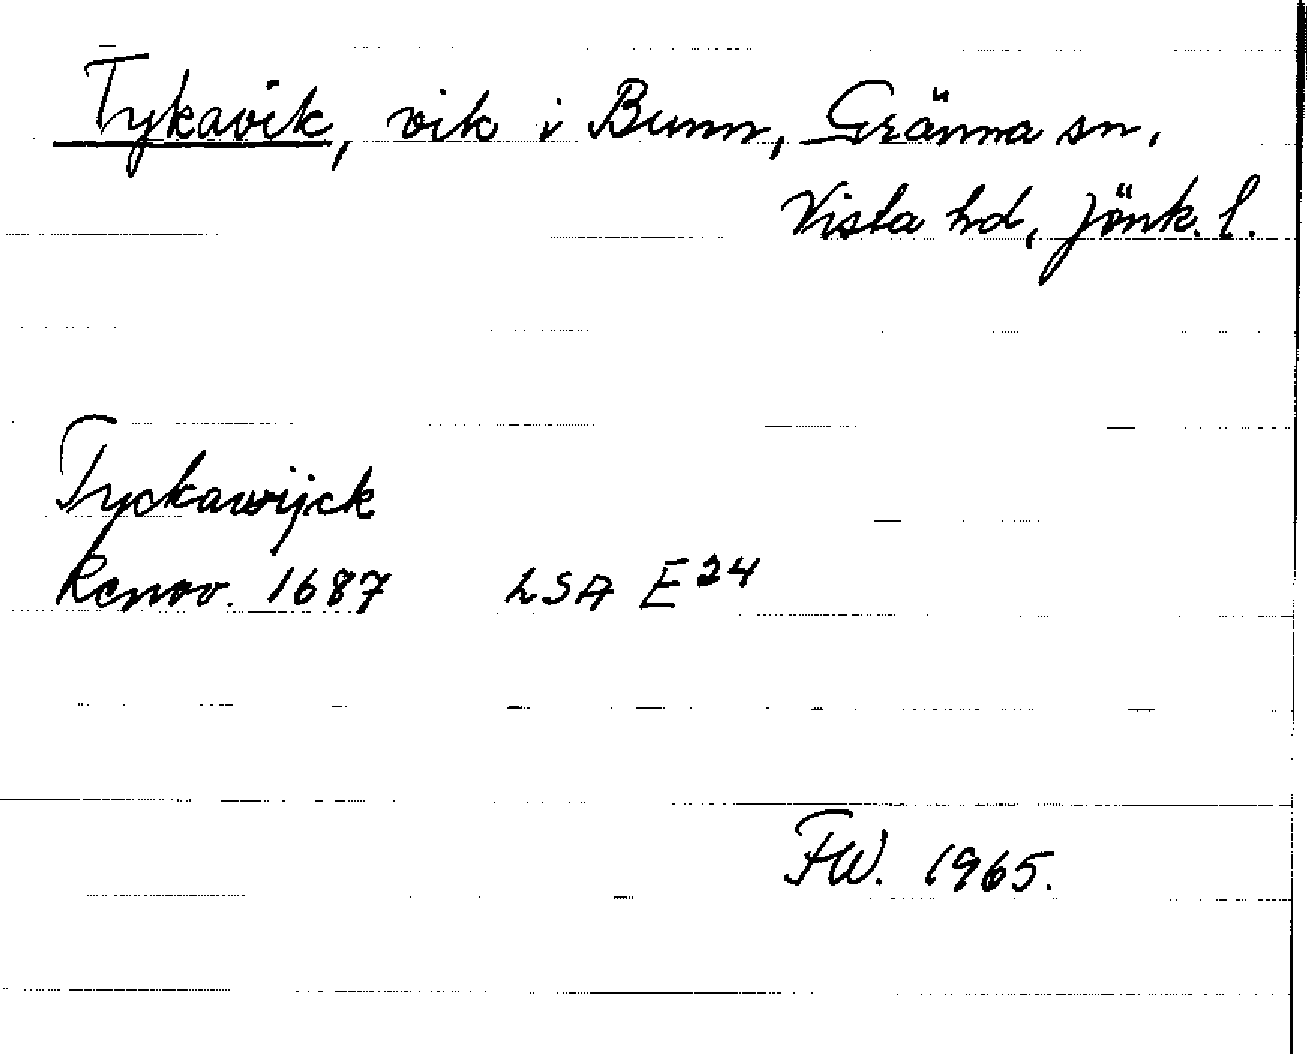 Tykavik, vik i Bunn, Gränna sn,
Vista hd, Jönk. l.
Tyckawijck
Renov. 1687 LSA E24
FW. 1965.